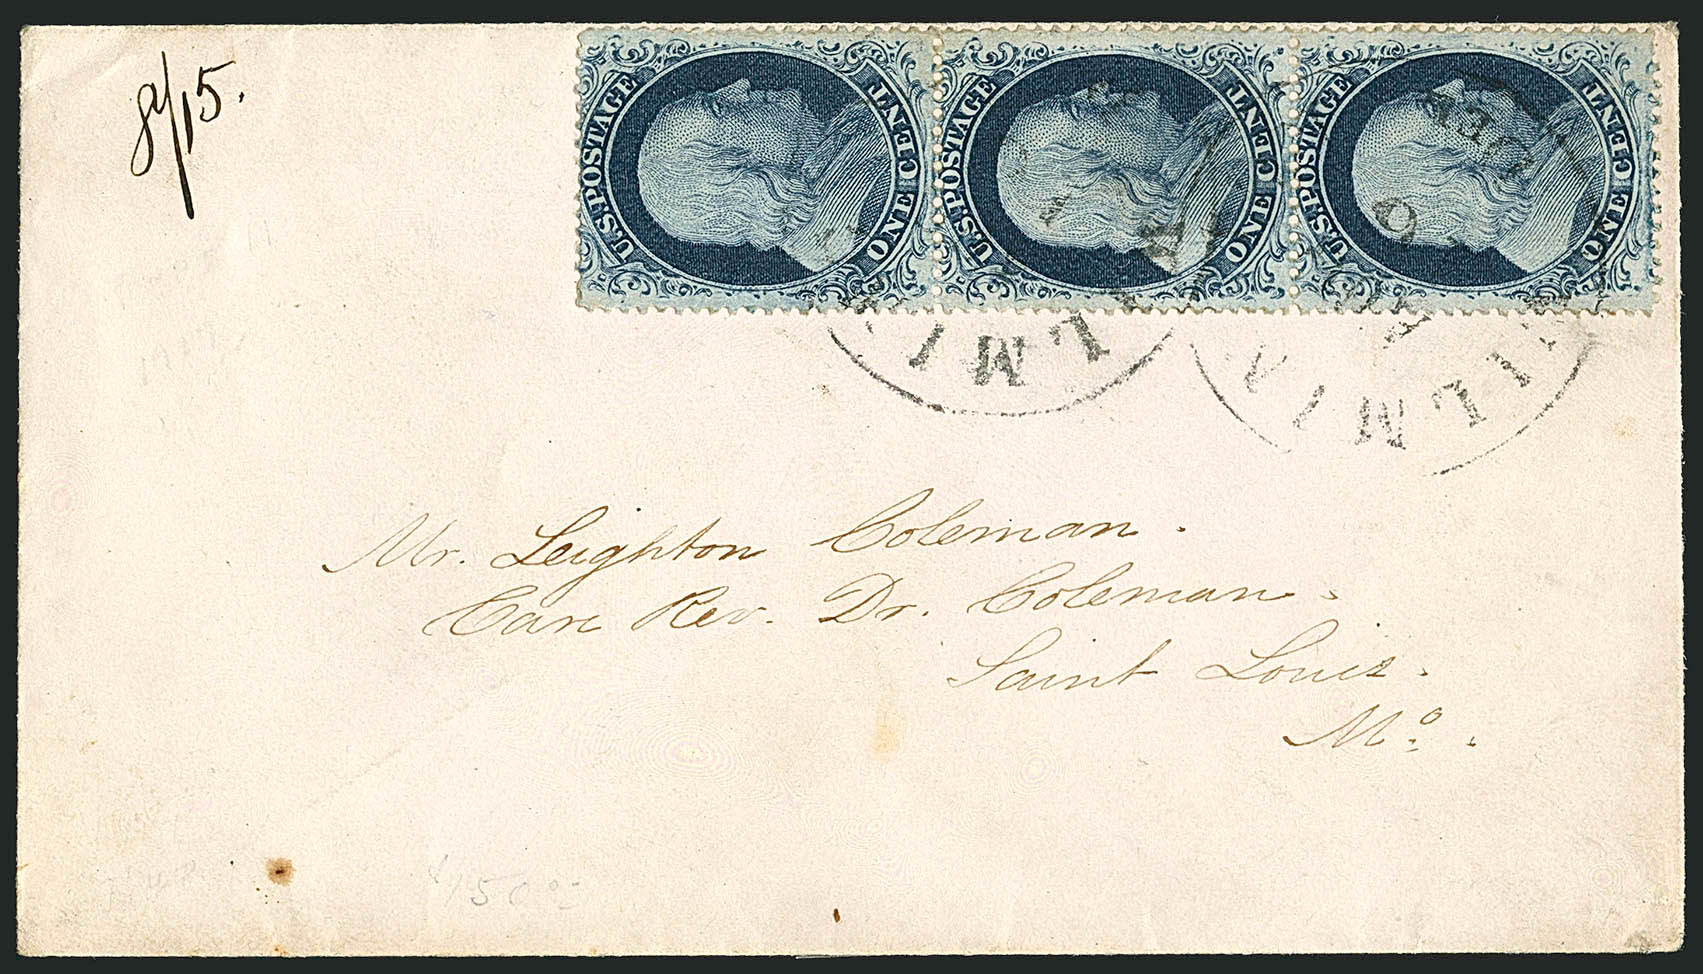 8/15.
U.S. POSTAGE ONE CENT
U.S. POSTAGE ONE CENT
U.S. POSTAGE ONE CENT
WILMI
WILMI
6
Mr. Leighton Coleman.
Care Rev. Dr. Coleman.
Saint Louis.
Mo.